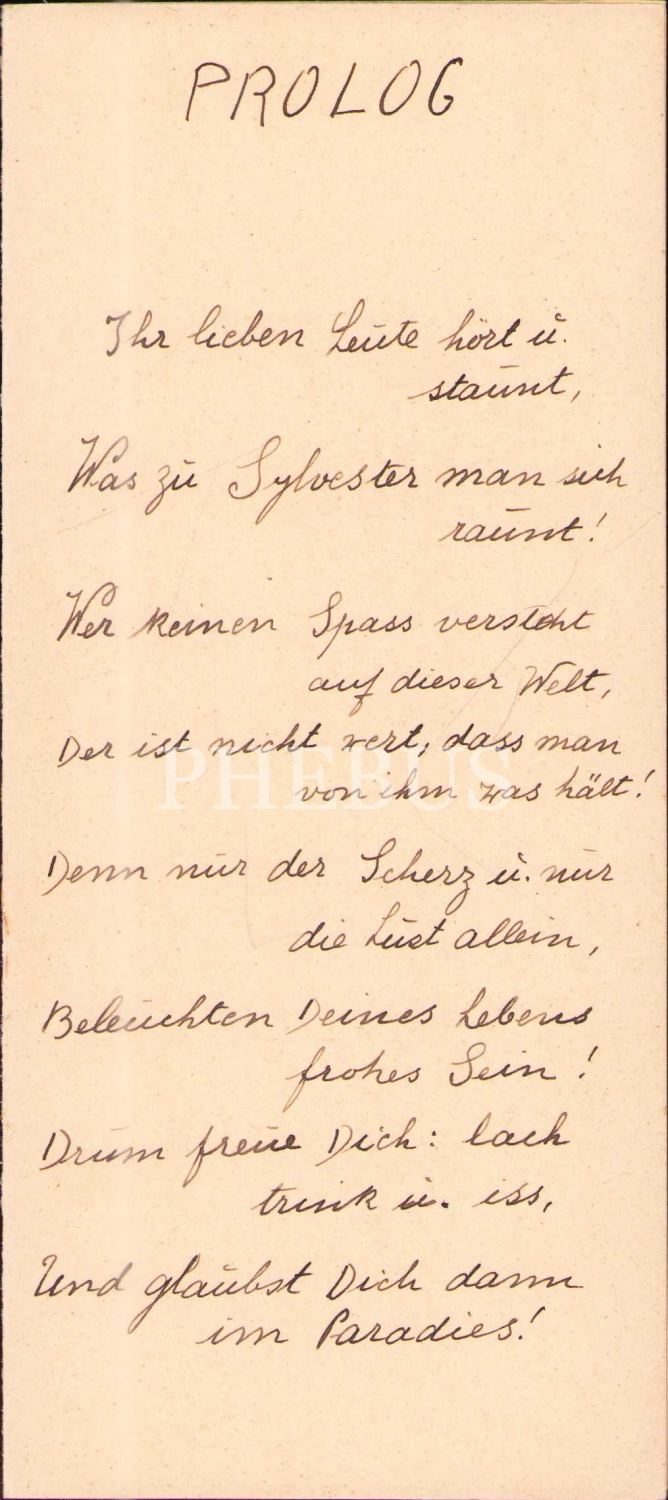 PROLOG
Ihr lieben Leute hört u.
staunt,
Was zu Sylvester man sich
raunt!
Wer keinen Spass versteht
auf dieser Welt,
Der ist nicht wert, dass man
von ihm was hält!
PHEBUS
Denn nur der Scherz u. nur
die Lust allein,
Beleuchten Deines Lebens
frohes Sein!
Drum freue Dich: lach
trink u. iss,
Und glaubst Dich dann
im Paradies!